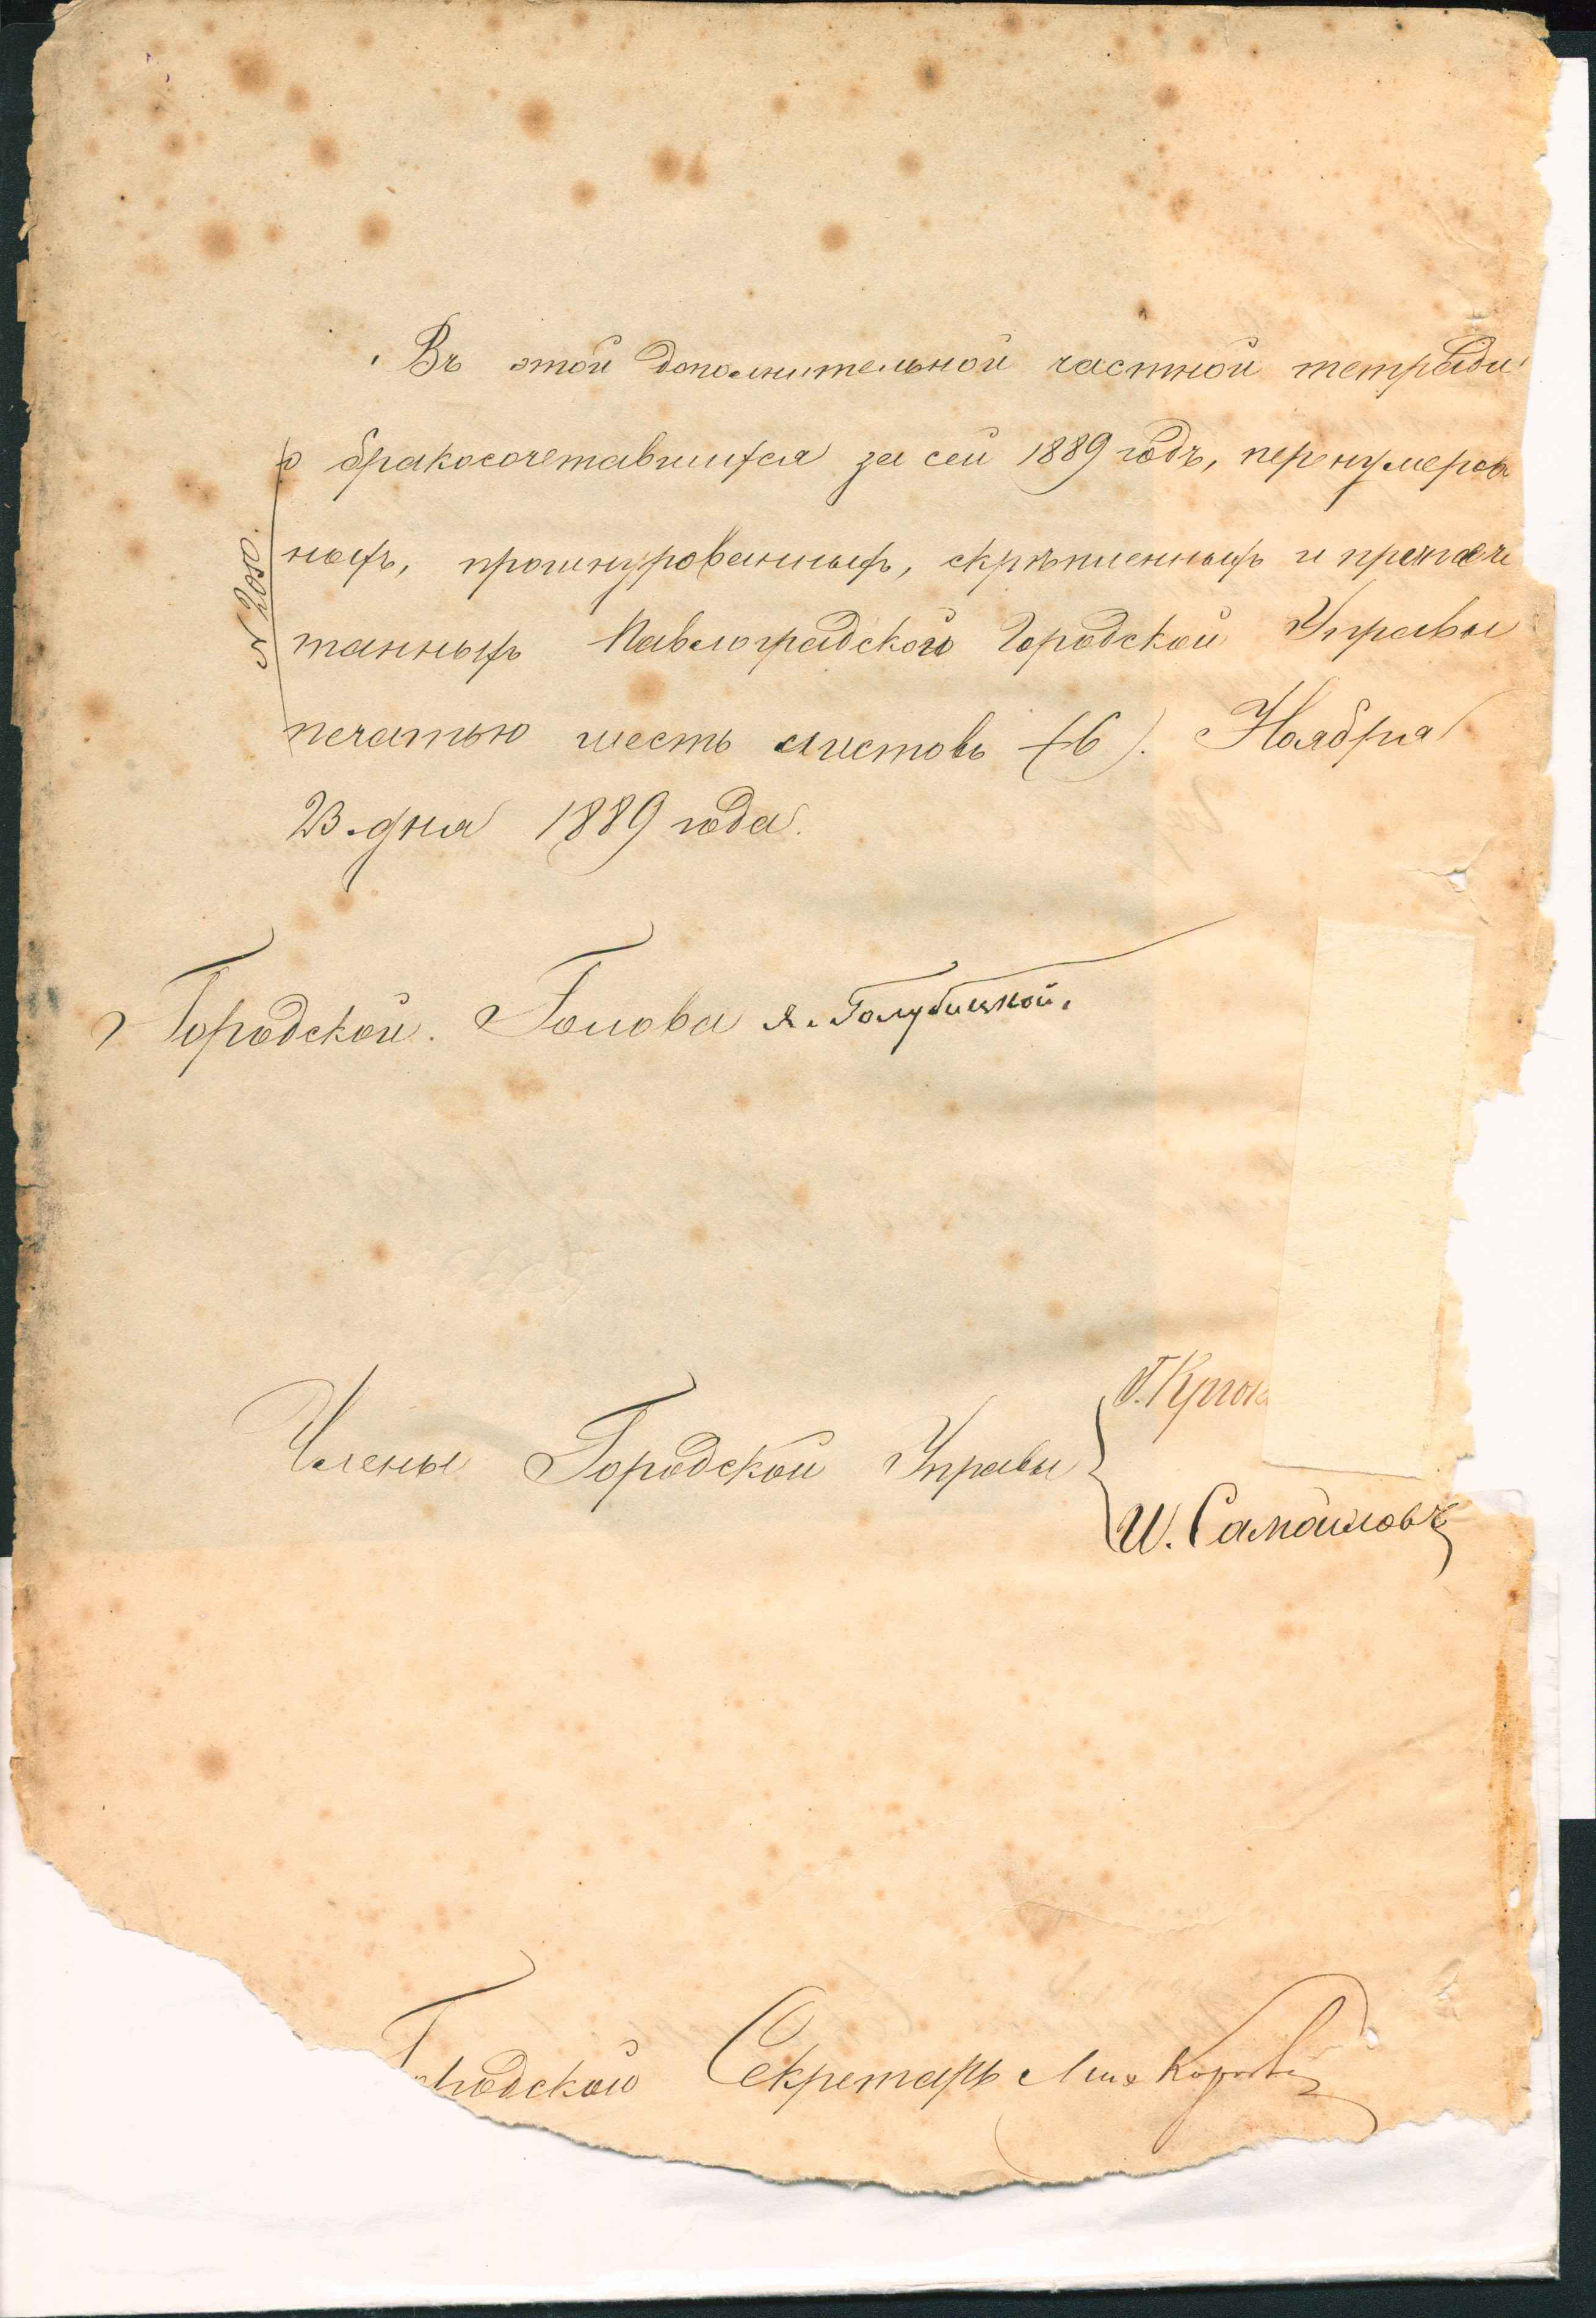 Въ этой дополнительной частной тетради
о бракосочетавшихся за сей 1889 годъ, перенумеров
ныхъ, прошнурованныхъ, скрѣпленныхъ и
танныхъ Павлоградской Городской Управы
печатью шесть листовъ (6). Ноября
23 дня 1889 года.
№ 2050.
Городской Голова Я. Голубицкой.
Члены Городской Управы
И. Самойловъ
Городской Секретарь Мих